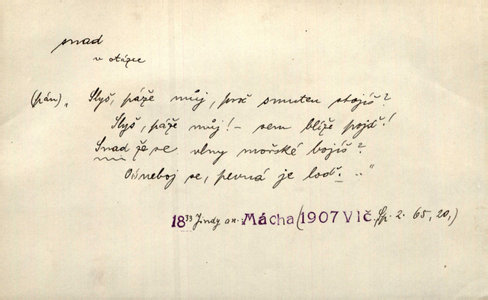 snad
v otázce
(pán) „Slyš, páže můj, proč smuten stojíš?
Slyš, páže můj! – sem blíže pojď!
Snad že se vlny mořské bojíš?
Ó neboj se, pevná je loď. .."
18³³ Jindy an. Mácha (1907 Vlč, Sp. 2. 65, 20,)